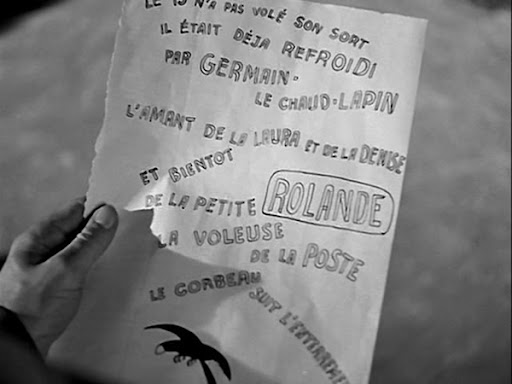 LE 13 N'A PAS VOLÉ SON SORT
IL ÉTAIT DÉJA REFROIDI
PAR GERMAIN-
LE CHAUD-LAPIN
L'AMANT DE LA LAURA ET DE LA DENISE
ET BIENTOT
DE LA PETITE ROLANDE
LA VOLEUSE
DE LA POSTE
LE CORBEAU
SUIT L'ENTERREMENT